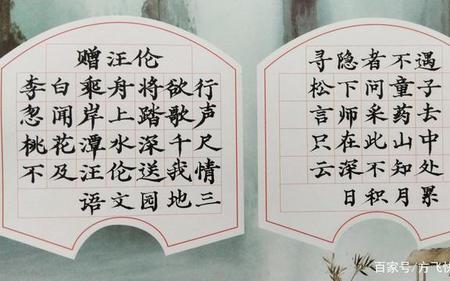 赠汪伦
李白乘舟将欲行
忽闻岸上踏歌声
桃花潭水深千尺
不及汪伦送我情
语文园地三
寻隐者不遇
松下问童子
言师采药去
只在此山中
云深不知处
日积月累
百家号/方飞